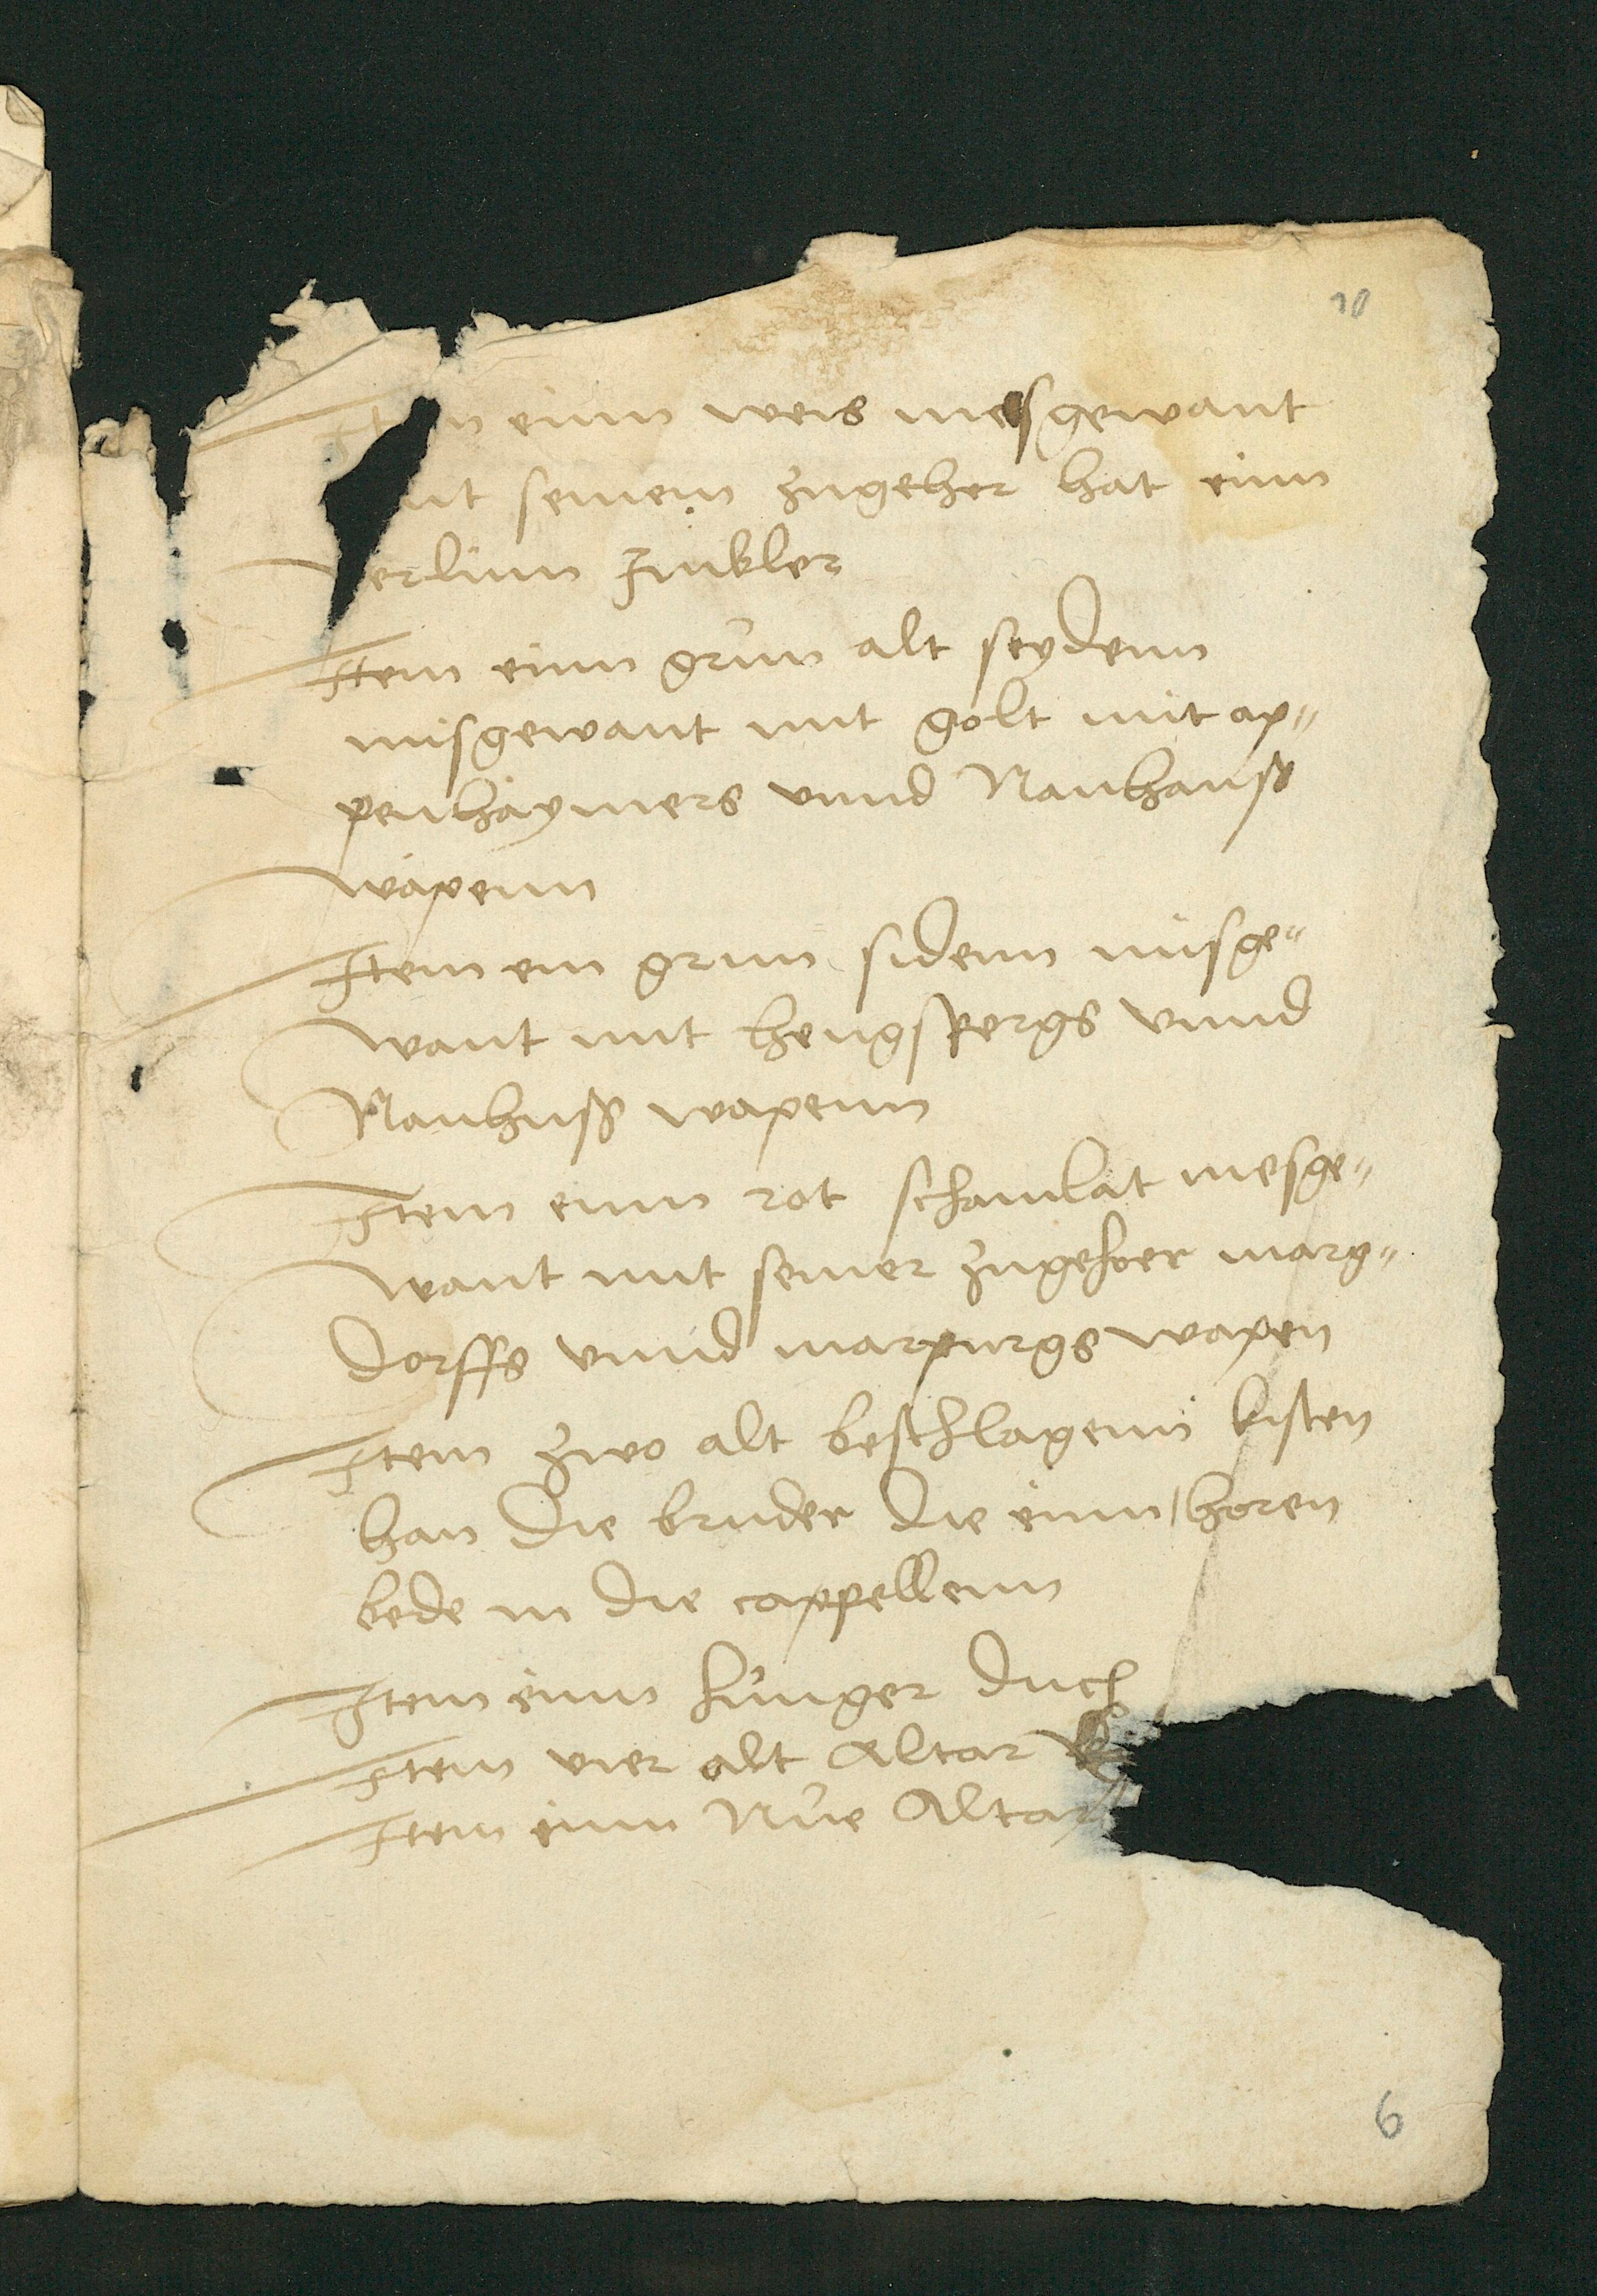 10
Item einn weis mesgewant
mit seinem zugeher hat einn
perlinn zinkler
Item einn grün alt seydenn
misgewant mit golt mit ap„
penhaymers vnnd Nauhauß
wapenn
Item ein grun sidenn misge„
want mit hengspergs vnnd
Nauhuß wapenn
Item einn rot schamlat mesge„
want mit seiner zugehoer marg„
dorffs vnnd marpurgs wapen
Item zwo alt beschlagenn kisten
han die bruder die inn horen
bede in die cappellenn
Item einn hunger duch
Item vier alt Altar
Item einn Nüe Altar
6